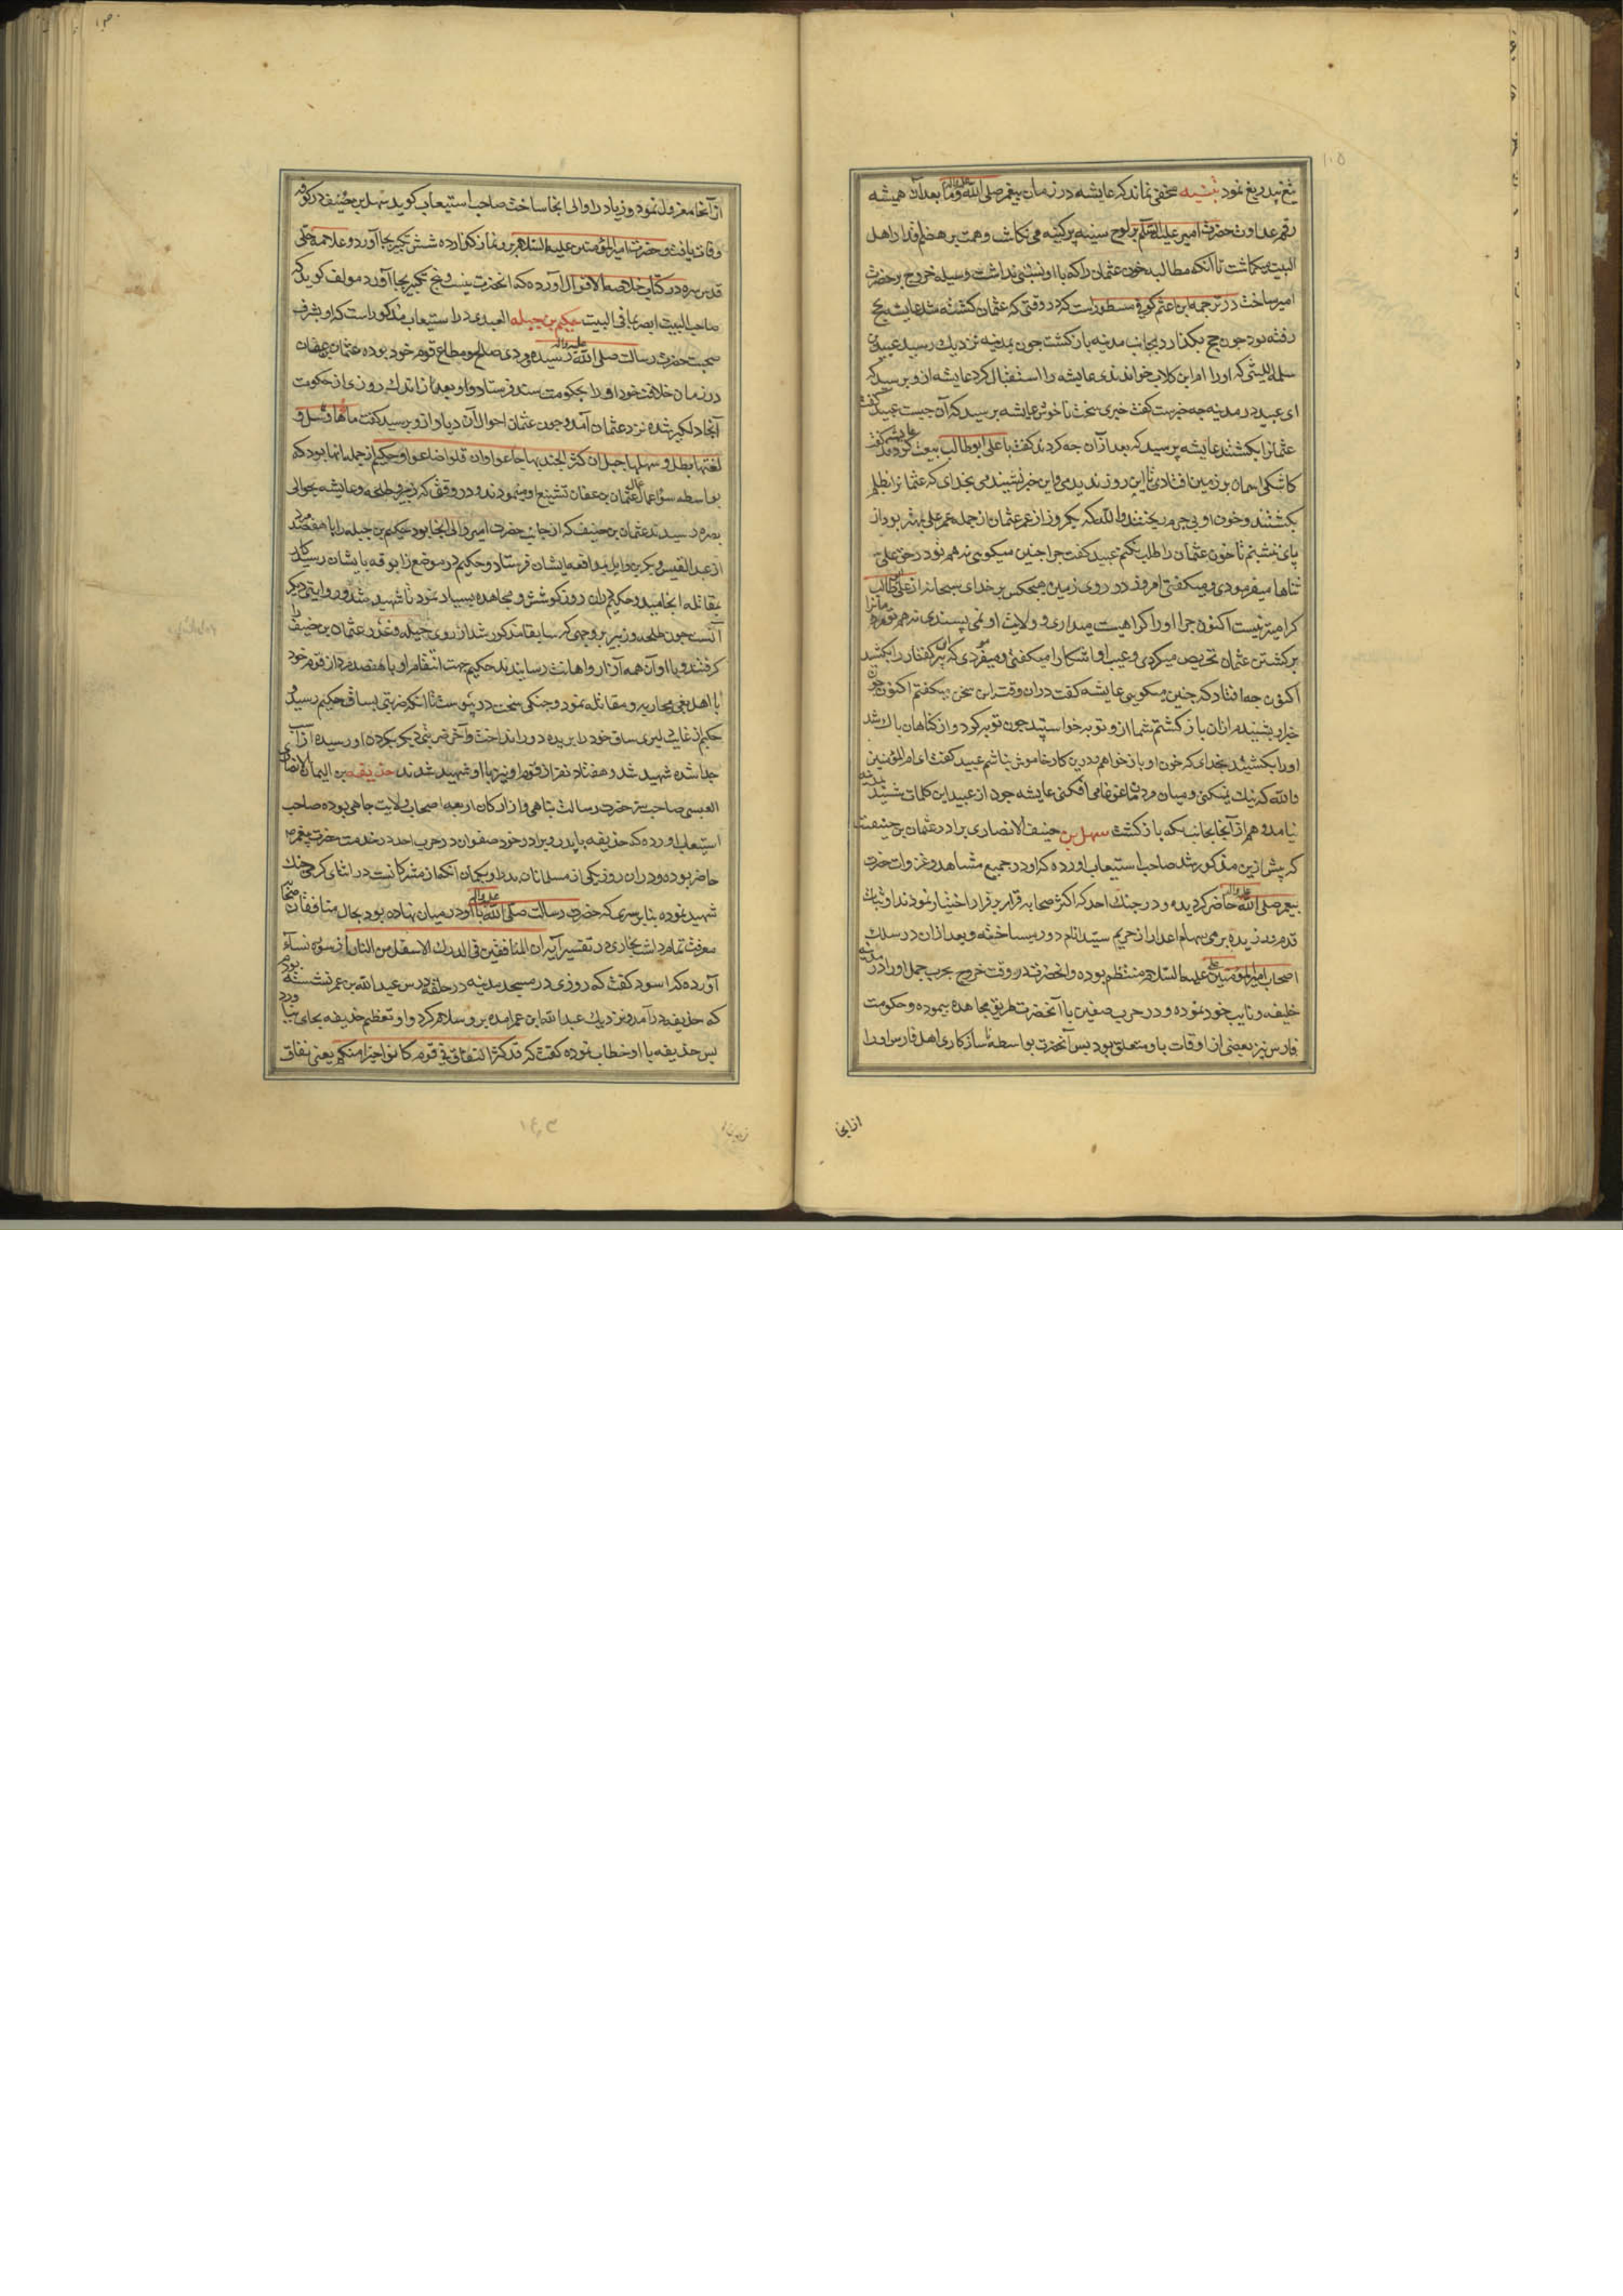 تیغ بیدریغ نمود تنبیه مخفی نماند که عایشه در زمان پیغمبر صلی الله علیه واله وما بعد آن همیشه
رقم عداوت حضرت امیر علیه السلم بر لوح سینه پر کینه می نکاشت و همت بر هضم قدر اهل
البیت میکماشت تا آنکه مطالبه خون عثمان را که با او نسبتی نداشت وسیله خروج بر حضرت
امیر ساخت در ترجمه ابن اعثم کوفی مسطور است که در وقتی که عثمان کشته شد عایشه بحج
رفته بود چون حج بکذارد بجانب مدینه باز کشت چون بمدینه نزدیک رسید عبید بن
سلمه اللیثی که او را ام ابن کلاب خواندندی عایشه را استقبال کرد عایشه ازو پرسید که
ای عبید در مدینه چه خبرست کفت خبری سخت ناخوش عایشه پرسید که آن چیست عبید کفت
عثمانرا بکشتند عایشه پرسید که بعد ازان چه کردند کفت با علی ابو طالب بیعت کردند عایشه کفت
کاشکی آسمان بر زمین افتادی تا این روز ندیدمی و این خبر نشنیدمی بخدای که عثمانرا بظلم
بکشتند و خون او بی جرم ریختند والله که یکروز از عمر عثمان از جمله عمر علی بهتر بود از
پای ننشینم تا خون عثمان را طلب نکنم عبید کفت چرا چنین میکویی نه هم تو در حق علی
ثناها میفرمودی و میکفتی امروز در روی زمین هیچکس بر خدای سبحانه از علی ابی طالب
کرامیتر نیست اکنون چرا او را کراهیت میداری و ولایت او نمی پسندی نه هم تو مردمانرا
بر کشتن عثمان تحریص میکردی و عیب او آشکارا میکفتی و میفرمودی که این پیر کفتار را بکشید
اکنون چه افتاد که چنین میکویی عایشه کفت دران وقت این سخن میکفتم اکنون چون
خبر او بشنیدم ازان باز کشتم شما ازو توبه خواستید چون توبه کرد و از کناهان پاک شد
او را بکشتید بخدای که خون او باز خواهم و درین کار خاموش نباشم عبید کفت ای ام المؤمنین
والله که نیک نمیکنی و میان مردمان غوغا می افکنی عایشه چون از عبید این کلمات شنید بمدینه
نیامد و هم از آنجا بجانب مکه باز کشت سهل بن حنیف الانصاری برادر عثمان بن حنیفست
که پیش ازین مذکور شد صاحب استیعاب آورده که او در جمیع مشاهد و غزوات حضرت
پیغمبر صلی الله علیه واله حاضر کردیده و در جنک احد که اکثر صحابه قرار بر فرار اختیار نمودند او ثبات
قدم ورزیده برمی سهام اعدا را از حریم سید انام دور میساخته و بعد ازان در سلک
اصحاب امیر المؤمنین علی علیه السلام منتظم بوده و آنحضرت در وقت خروج بحرب جمل او را در مدینه
خلیفه و نایب خود نموده و در حرب صفین با آنحضرت طریق مجاهده پیموده و حکومت
فارس نیز بعضی از اوقات باو متعلق بود پس آنحضرت بواسطه ناسازکاری اهل فارس او را
از آنجا
از آنجا معزول نمود و زیاد را والی آنجا ساخت صاحب استیعاب کوید سهل بن حنیف در کوفه
وفات یافت و حضرت امیر المؤمنین علیه السلام برو نماز کزارده شش تکبیر بجا آورد و علامه حلی
قدس سره در کتاب خلاصة الاقوال آورده که آنحضرت بیست و پنج تکبیر بجا آورد مولف کوید که
صاحب البیت ابصر بما فی البیت حکیم بن جبله العبدی در استیعاب مذکور است که او بشرف
صحبت حضرت رسالت صلی الله علیه واله رسیده مردی صالح و مطاع قوم خود بوده عثمان بن عفان
در زمان خلافت خود او را بحکومت سند فرستاد و او بعد از اندک روزی از حکومت
آنجا دلکیر شده نزد عثمان آمد و چون عثمان احوال آن دیار ازو پرسید کفت ماؤها وشل و
لصها بطل و سهلها جبل ان کثر الجند بها جاعوا وان قلوا ضاعوا و حکیم از جمله آنها بود که
بواسطه سؤ اعمال عثمان بن عفان تشنیع او مینمودند و در وقتی که زبیر و طلحه و عایشه بحوالی
بصره رسیدند عثمان بن حنیف که از جانب حضرت امیر والی آنجا بود حکیم بن جبله را با هفتصد مرد
از عبد القیس و بکر بن وایل بمدافعه ایشان فرستاد و حکیم در موضع زابوقه بایشان رسید کار
بمقاتله انجامید و حکیم دران روز کوشش و مجاهده بسیار نمود تا شهید شد و روایتی دیکر
آنست چون طلحه و زبیر بر وجهی که سابقا مذکور شد از روی حیله و غدر عثمان بن حنیف را
کرفتند و با او آن همه آزار و اهانت رسانیدند حکیم جهت انتقام او با هفتصد مرد از قوم خود
با اهل بغی محاربه و مقاتله نمود و جنکی سخت در پیوست تا آنکه ضربتی بساق حکیم رسید و
حکیم از غایت دلیری ساق خود را بریده دور انداخت و آخر ضربتی دیکر بکردن او رسیده از آب
جدا شده شهید شد و هفتاد نفر از قوم او نیز با او شهید شدند حذیفه بن الیمان الانصاری
العبسی صاحب سر حضرت رسالت پناهی و از ارکان اربعه اصحاب ولایت جاهی بوده صاحب
استیعاب آورده که حذیفه با پدر و برادر خود صفوان در حرب احد در خدمت حضرت پیغمبر
حاضر بوده و دران روز یکی از مسلمانان پدر او بکمان آنکه از مشرکانست در اثنای کرمی جنک
شهید نموده بنابر سری که حضرت رسالت صلی الله علیه واله با او در میان نهاده بود بحال منافقان صحابه
معرفت تمام داشت بخاری در تفسیر آیه ان المنافقین فی الدرک الاسفل من النار از سوره نساء
آورده که اسود کفت که روزی در مسجد مدینه در حلقه درس عبد الله بن عمر نشسته بودم
که حذیفه در آمد و نزدیک عبد الله ابن عمر آمده برو سلام کرد و او تعظیم حذیفه بجای نیاورد
پس حذیفه با او خطاب نموده کفت که قد کثر النفاق فی قوم کانوا خیرا منکم یعنی نفاق